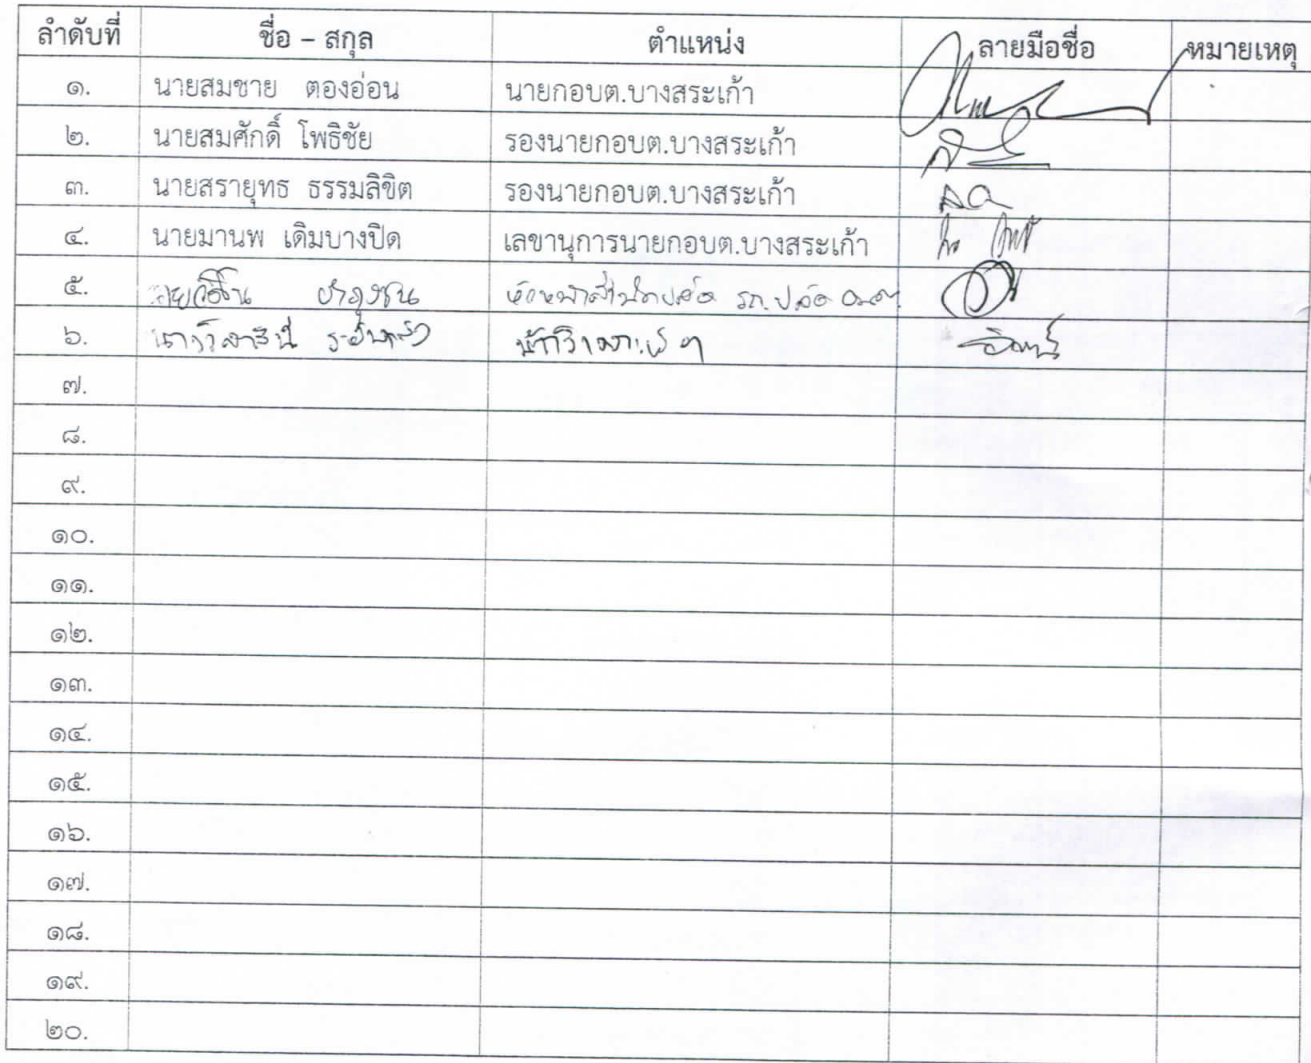 ลำดับที่ ชื่อ – สกุล ตำแหน่ง ลายมือชื่อ หมายเหตุ
๑. นายสมชาย ตองอ่อน นายกอบต.บางสระเก้า
๒. นายสมศักดิ์ โพธิชัย รองนายกอบต.บางสระเก้า
๓. นายสรายุทธ ธรรมลิขิต รองนายกอบต.บางสระเก้า
๔. นายมานพ เดิมบางปิด เลขานุการนายกอบต.บางสระเก้า
๕. หัวหน้าสำนักปลัด รก.ปลัด อบต.
๖. นักวิเคราะห์ ฯ
๗.
๘.
๙.
๑๐.
๑๑.
๑๒.
๑๓.
๑๔.
๑๕.
๑๖.
๑๗.
๑๘.
๑๙.
๒๐.